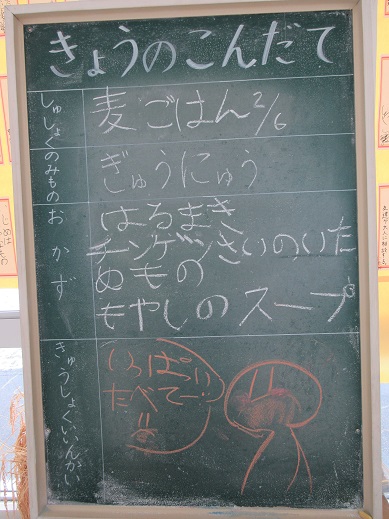 きょうのこんだて
しゅしょく
麦ごはん 2/6
のみもの
ぎゅうにゅう
おかず
はるまき
チンゲンさいのいた
めもの
もやしのスープ
きゅうしょくいいんかい
いっぱーい
たべてー!!